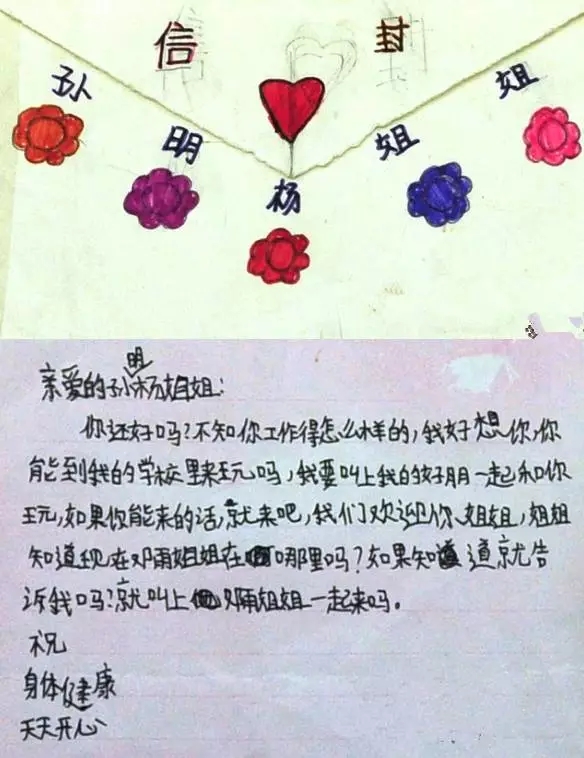 信封
孙明杨姐姐
亲爱的孙明杨姐姐:
你还好吗?不知你工作得怎么样的,我好想你,你
能到我的学校里来玩吗,我要叫上我的好朋一起和你
玩,如果你能来的话,就来吧,我们欢迎你、姐姐,姐姐
知道现在邓雨姐姐在哪里吗?如果知道就告
诉我吗?就叫上邓雨姐姐一起来吗。
祝
身体健康
天天开心